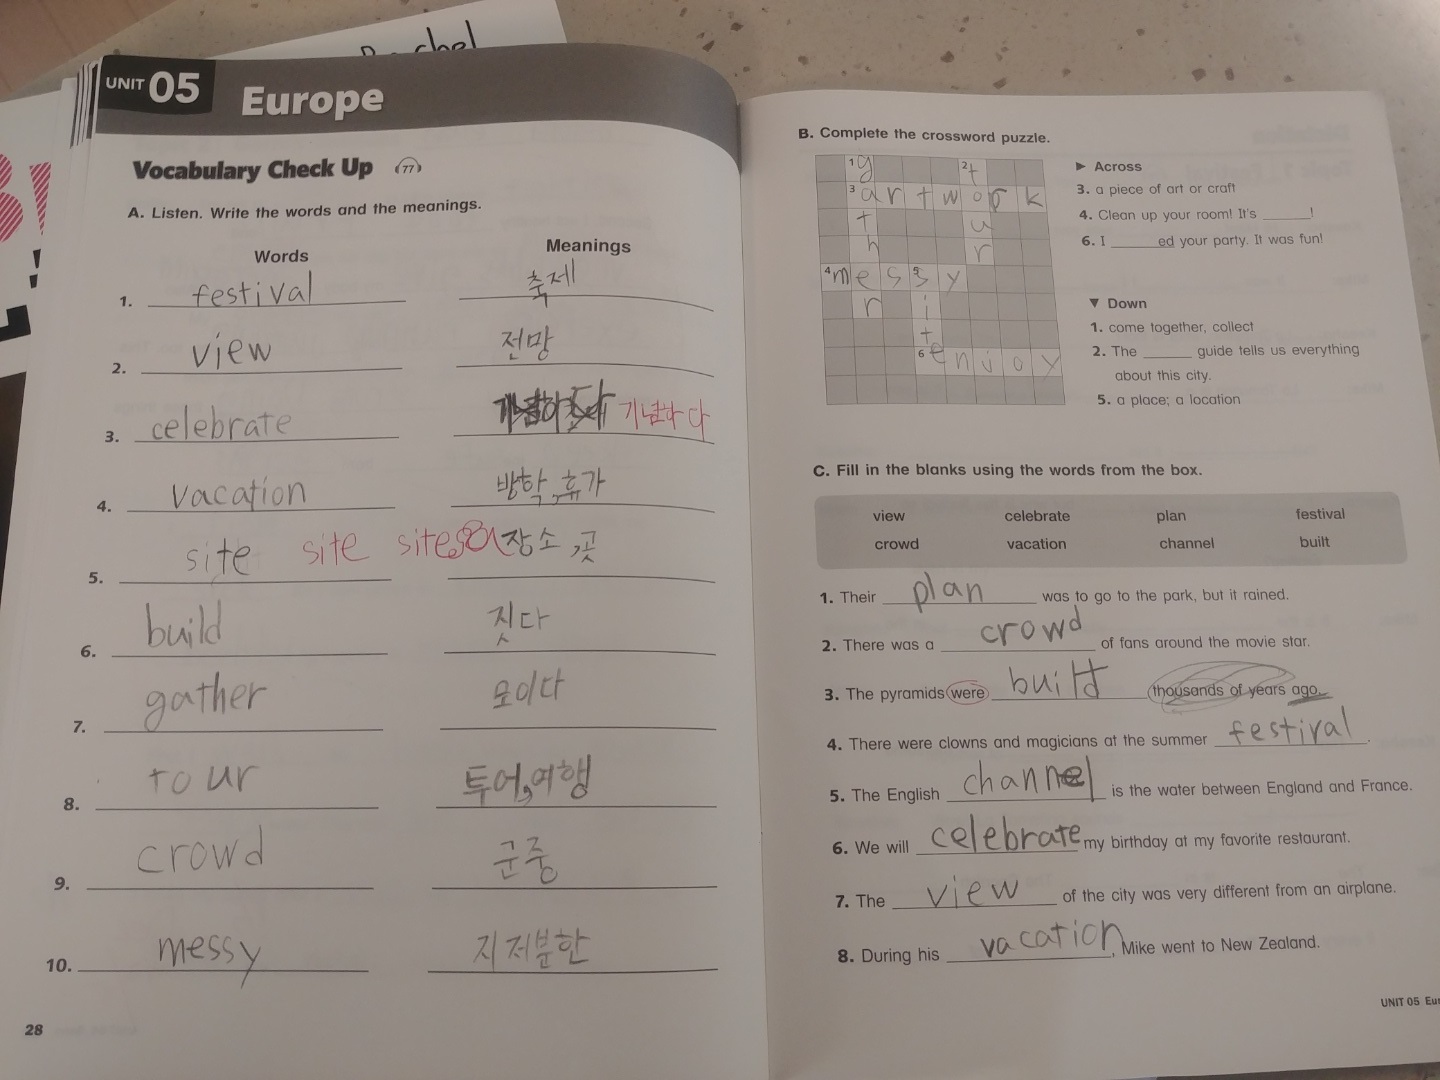 Rachel
UNIT 05 Europe
Vocabulary Check Up 77
A. Listen. Write the words and the meanings.
Words Meanings
1. festival 축제
2. view 전망
3. celebrate 기념하다
4. vacation 방학, 휴가
5. site site site 장소, 곳
6. build 짓다
7. gather 모이다
8. tour 투어, 여행
9. crowd 군중
10. messy 지저분한
28
B. Complete the crossword puzzle.
1 g 2 t
3 a r t w o r k
t u
h r
4 m e s 5 s y
r i
t
6 e n j o y
▶ Across
3. a piece of art or craft
4. Clean up your room! It's ______!
6. I ______ed your party. It was fun!
▼ Down
1. come together, collect
2. The ______ guide tells us everything
about this city.
5. a place; a location
C. Fill in the blanks using the words from the box.
view celebrate plan festival
crowd vacation channel built
1. Their plan was to go to the park, but it rained.
2. There was a crowd of fans around the movie star.
3. The pyramids were built thousands of years ago.
4. There were clowns and magicians at the summer festival.
5. The English channel is the water between England and France.
6. We will celebrate my birthday at my favorite restaurant.
7. The view of the city was very different from an airplane.
8. During his vacation, Mike went to New Zealand.
UNIT 05 Eur